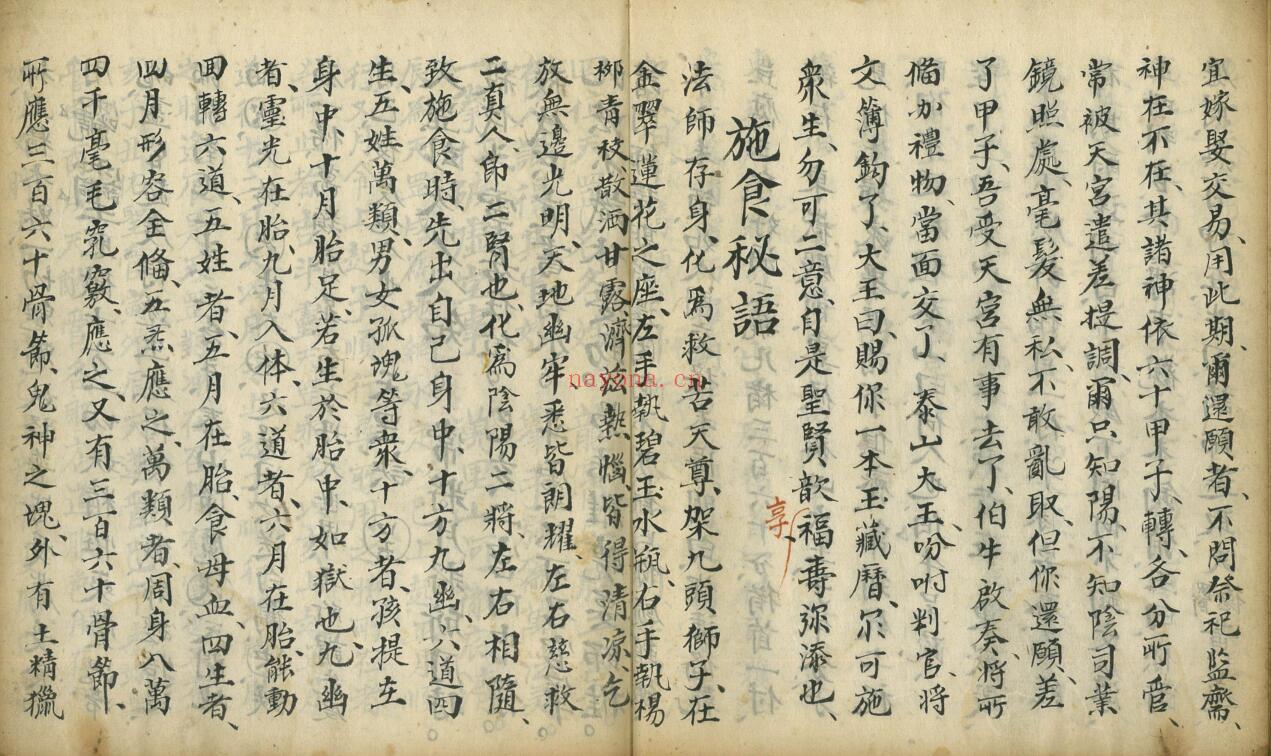 宜嫁娶交易、用此期、爾還願者、不問祭祀監齋、
神在不在、其諸神依六十甲子、轉、各分所管、
常被天宮遣差提調、爾只知陽、不知陰司業
鏡照處、毫髮無私、不敢亂取、但你還願、差
了甲子、吾受天宮有事去了、伯牛啟奏、將所
偹办禮物、當面交了、泰山大王、吩咐判官、將
文簿鈎了、大王曰、賜你一本玉藏曆、尔可施
衆生、勿可二意、自是聖賢歆福壽弥添也、
享
施食秘語
法師存身、化爲救苦天尊、架九頭獅子、在
金翠蓮花之座、左手執碧玉水瓶、右手執楊
柳青枝、散洒甘露、濟兹熱惱、皆得清凉、乞
放無邊光明、天地幽牢、悉皆朗耀、左右慈救
二真人、即二腎也、化爲陰陽二將、左右相隨、
致施食時、先出自己身中、十方九幽、六道四
生、五姓萬類、男女孤魂等衆、十方者、孩提在
身中、十月胎足、若生於胎中、如獄也、九幽
者、靈光在胎、九月入体、六道者、六月在胎、能動
回轉六道、五姓者、五月在胎、食母血、四生者、
四月形容全偹、五炁應之、萬類者、周身八萬
四千毫毛窍竅、應之、又有三百六十骨節、
所應三百六十骨節、鬼神之塊、外有土精獵
nayona.cn